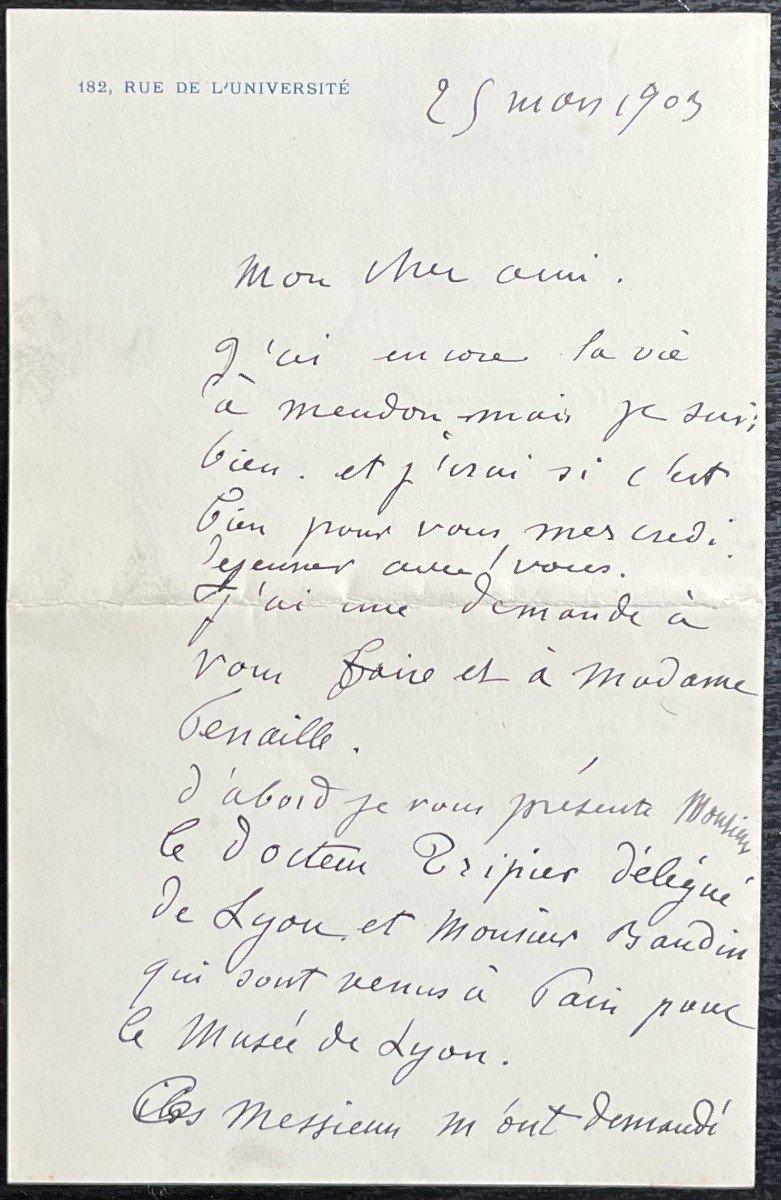 182, RUE DE L'UNIVERSITÉ
25 mars 1903
Mon cher ami.
J'ai encore la
à meudon mais je suis
bien. et j'irai si c'est
bien pour vous mercredi
dejeuner avec vous.
j'ai une demande à
vous faire et à Madame
Fenaille.
d'abord je vous présente Monsieur
le docteur Tripier délégué
de Lyon. et Monsieur Baudin
qui sont venus à Paris pour
le Musée de Lyon.
Ces Messieurs m'ont demandé